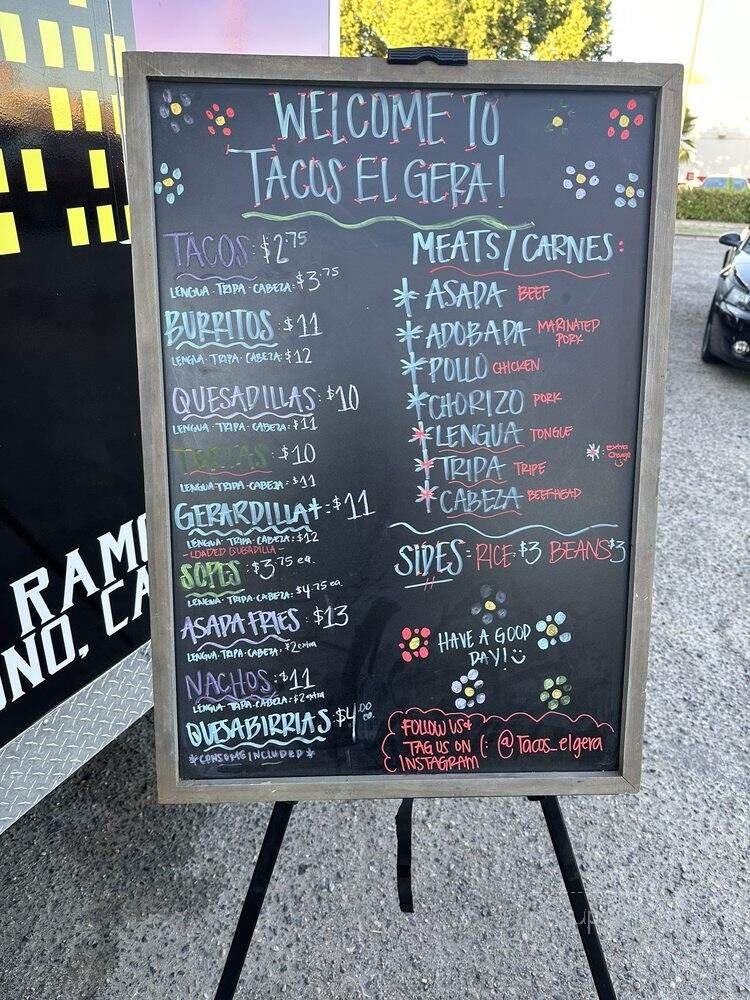 WELCOME TO
TACOS EL GERA!
TACOS: $2.75
LENGUA · TRIPA · CABEZA: $3.75
BURRITOS: $11
LENGUA · TRIPA · CABEZA: $12
QUESADILLAS: $10
LENGUA · TRIPA · CABEZA: $11
TORTAS: $10
LENGUA · TRIPA · CABEZA: $11
GERARDILLA*: $11
LENGUA · TRIPA · CABEZA: $12
-LOADED QUESADILLA-
SOPES: $3.75 ea.
LENGUA · TRIPA · CABEZA: $4.75 ea.
ASADA FRIES: $13
LENGUA · TRIPA · CABEZA: $2 extra
NACHOS: $11
LENGUA · TRIPA · CABEZA: $2 extra
QUESABIRRIAS: $4.00 ea.
*CONSOME INCLUDED*
MEATS/CARNES:
* ASADA BEEF
* ADOBADA MARINATED
PORK
* POLLO CHICKEN
* CHORIZO PORK
* LENGUA TONGUE
* TRIPA TRIPE
* CABEZA BEEFHEAD
*: extra
charge
SIDES: RICE: $3 BEANS $3
HAVE A GOOD
DAY!
FOLLOW US &
TAG US ON
INSTAGRAM (: @Tacos_elgera
RAMO
NO, CA